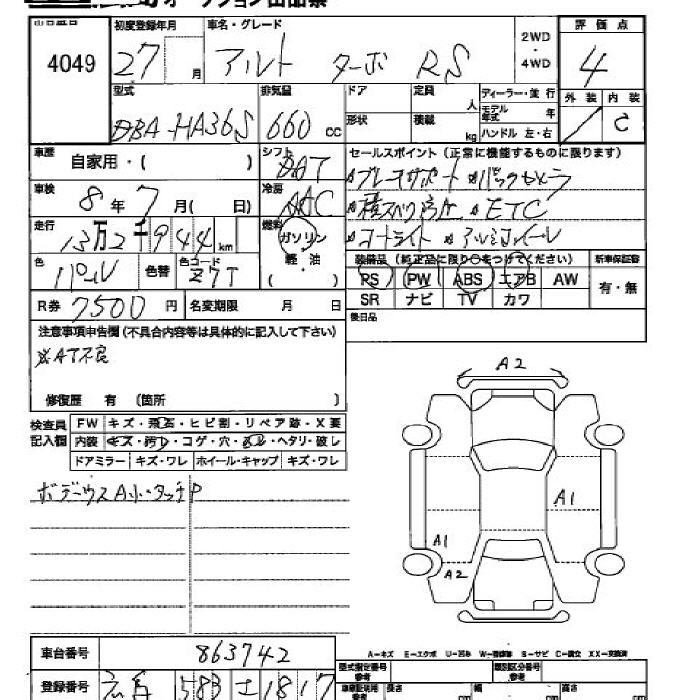 オークション出品票
出品番号 初度登録年月 車名・グレード 評価点
4049 27 月 アルト ターボ RS 2WD・4WD 4
型式 排気量 ドア 定員 人 ディーラー・並行 外装 内装
DBA-HA36S 660 cc 形状 積載 kg モデル年式 年 ハンドル 左・右 C
車歴 自家用・( ) シフト AT セールスポイント (正常に機能するものに限ります)
車検 8年 7月( 日) 冷房 AAC ブレーキサポート
走行 13万2千944km 燃料 ガソリン 軽・油 ( ) ETC
オートライト アルミホイール
色 パール 色替 色コード Z7T 装備品 (純正品に限り○をつけてください) 新車保証書
R券 7500円 名変期限 月 日 PS PW ABS エアB AW 有・無
SR ナビ TV カワ
注意事項申告欄 (不具合内容等は具体的に記入して下さい) 後日品
※AT不良
修復歴 有 (箇所 )
検査員記入欄 FW キズ・飛石・ヒビ割・リペア跡・X要
内装 キズ・汚れ・コゲ・穴・ヘタリ・破レ
ドアミラー キズ・ワレ ホイール・キャップ キズ・ワレ
A2
A1
A1
A2
A-キズ E-エクボ U-凹み W-補修跡 S-サビ C-腐食 XX-交換済
車台番号 863742 型式指定番号 参考 類別区分番号 参考
登録番号 583 1817 車庫証明用 参考 長さ cm 幅 cm 高さ cm